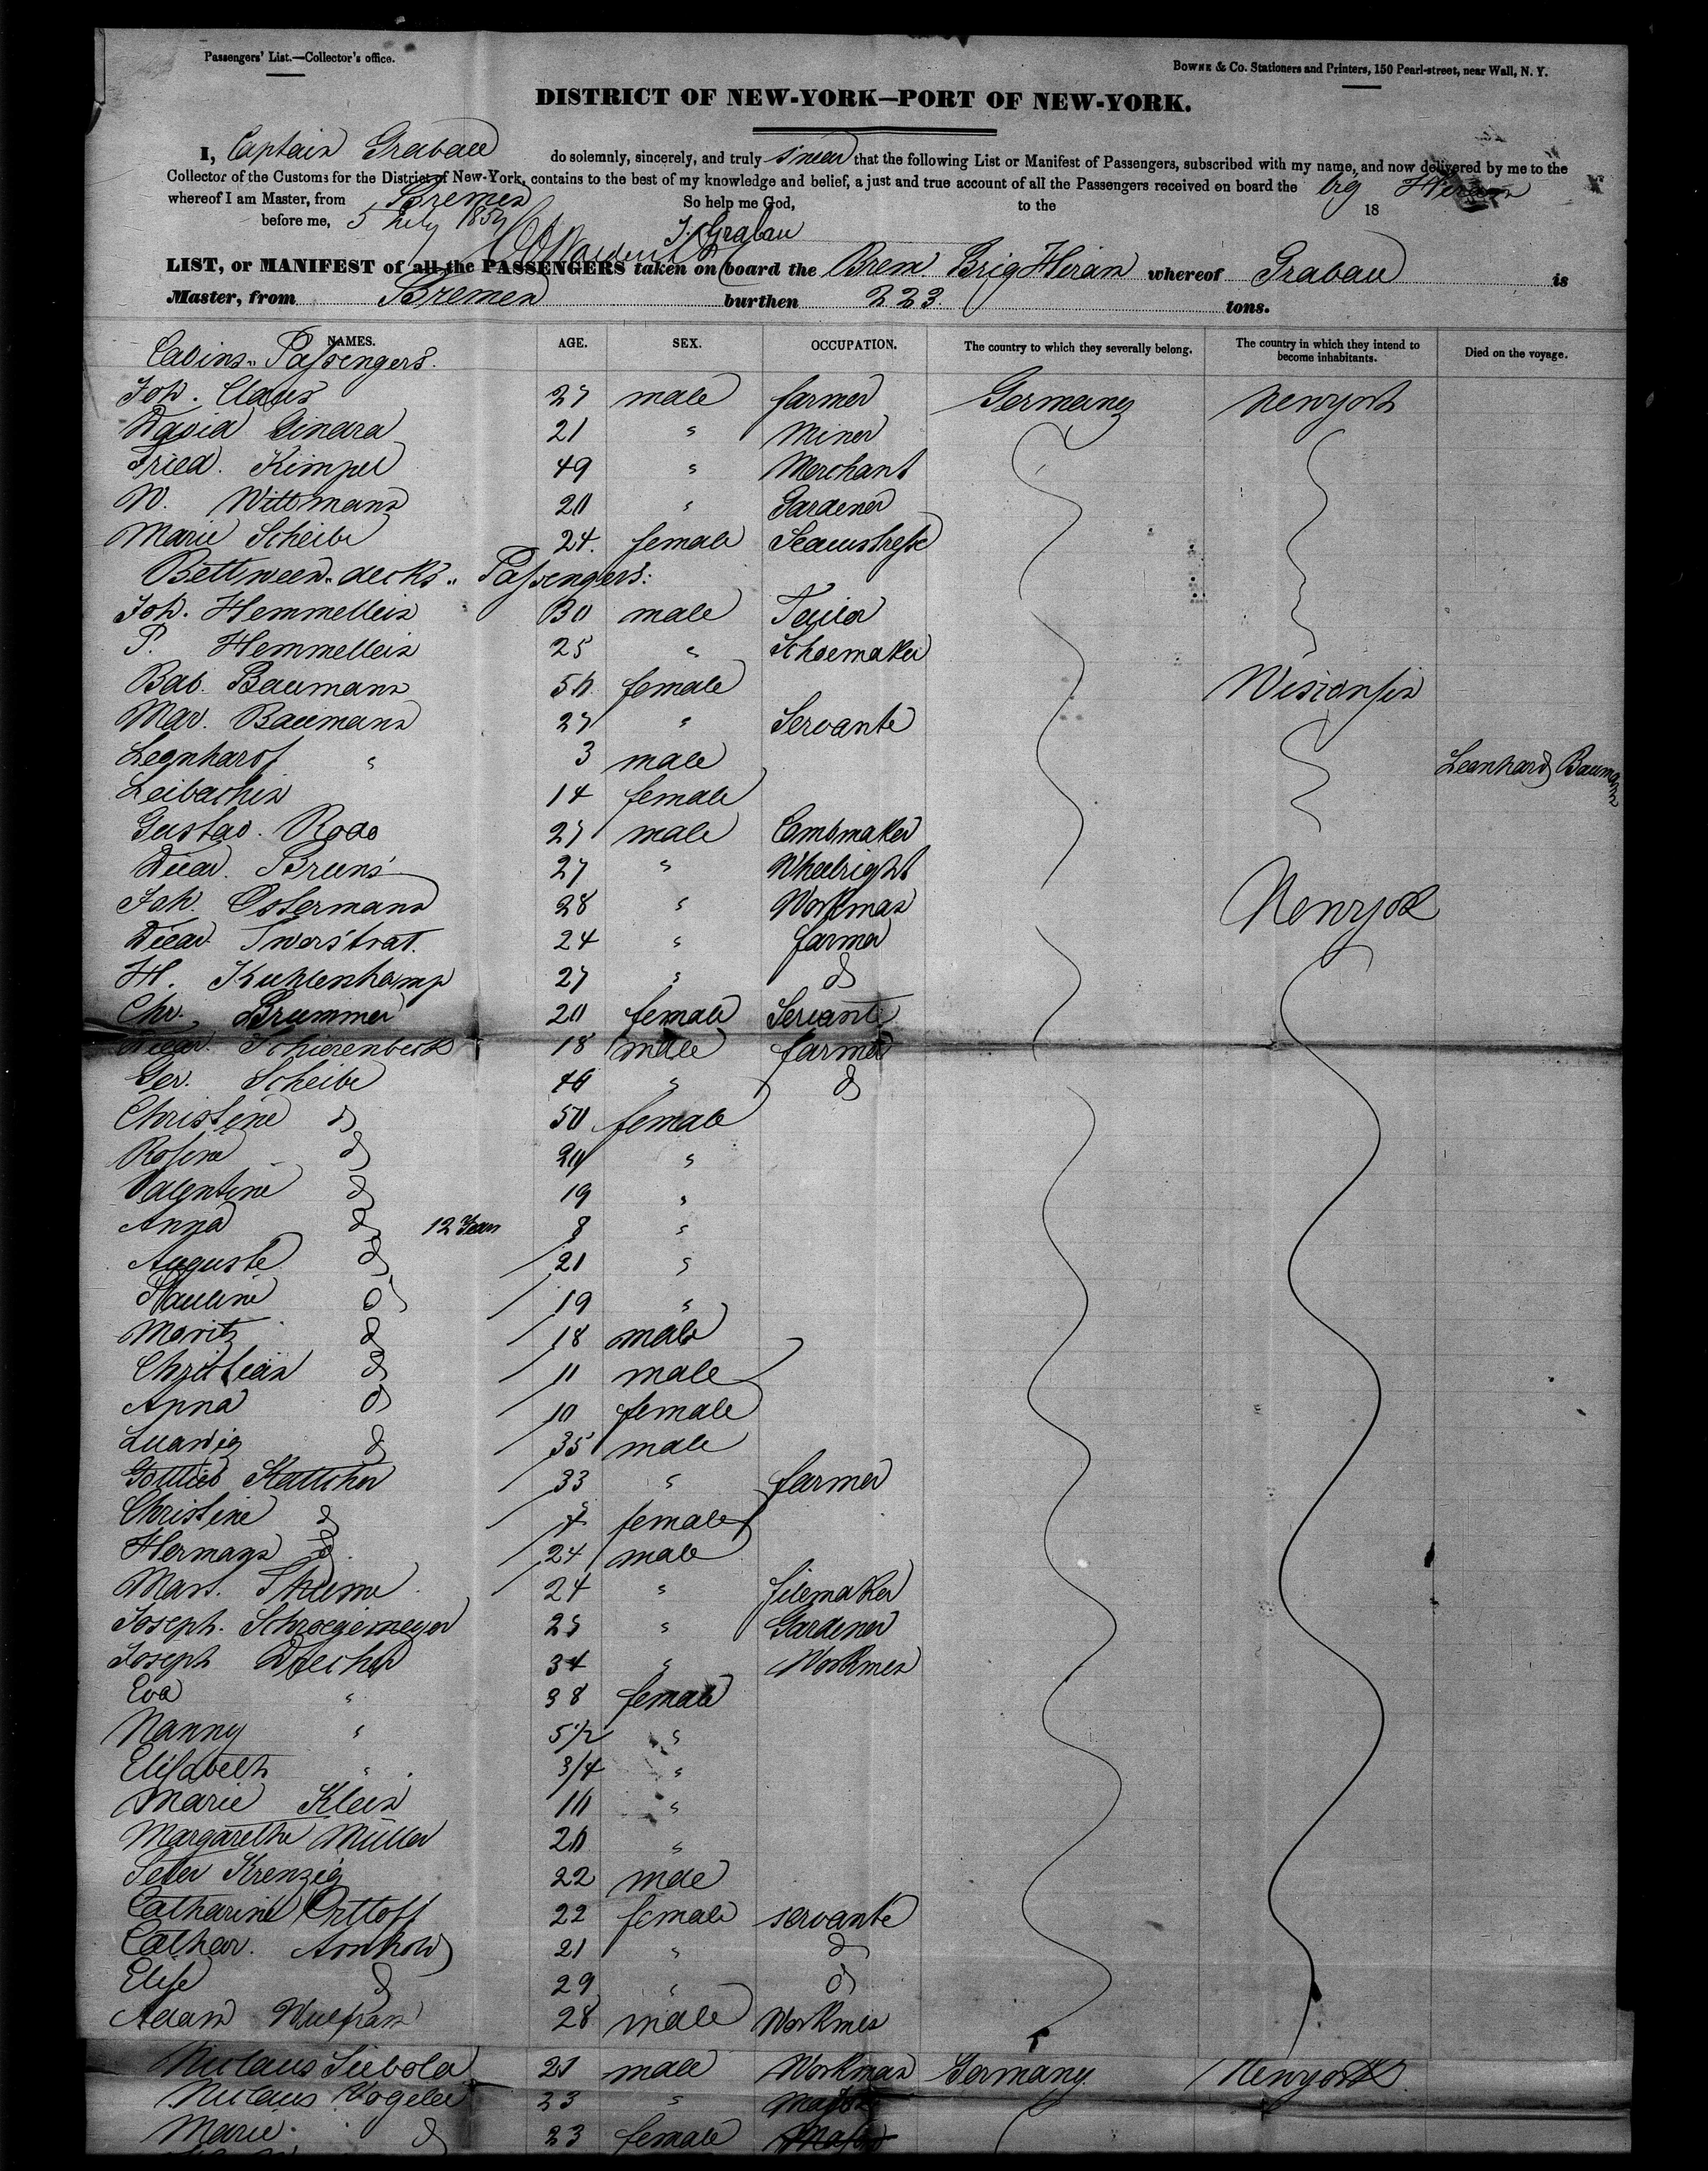 Passengers' List.—Collector's office.
BOWNE & Co. Stationers and Printers, 150 Pearl-street, near Wall, N. Y.
DISTRICT OF NEW-YORK—PORT OF NEW-YORK.
I, Captain Grabau do solemnly, sincerely, and truly swear that the following List or Manifest of Passengers, subscribed with my name, and now delivered by me to the
Collector of the Customs for the District of New-York, contains to the best of my knowledge and belief, a just and true account of all the Passengers received on board the brg Hiram
whereof I am Master, from Bremen So help me God, to the
before me, 5 July 185 J. Grabau 18
LIST, or MANIFEST of all the PASSENGERS taken on board the Brem. Brig Hiram whereof Grabau is
Master, from Bremen burthen 223. tons.
NAMES. AGE. SEX. OCCUPATION. The country to which they severally belong. The country in which they intend to become inhabitants. Died on the voyage.
Cabins" Passengers.
Joh. Claus 27 male farmer Germany Newyork
21 " Miner
Fried. Kimpel 49 " Merchant
W. Wittmann 20 " Gardener
Marie Scheibe 24. female Seamstresse
Bettween-decks" Passengers:
Joh. Hemmellein 30 male Tailor
P. Hemmellein 25 " Schoemaker
Bab. Baumann 50 female Wisconsin
Mar. Baumann 27 " Servante
Leonhard " 3 male Leonhard Baumann
Leibachin 14 female
Gustav. Rodo 27 male Combmaker
Died. Bruns 27 " Wheelright
Joh. Ostermann 28 " Workman Newyork
Died. Twerstrat. 24 " farmer
H. Kuhlenkamp 27 " do
Chr. Brummer 20 female Servante
Died. Schierenbeck 18 male farmer
Ger. Scheibe 40 " do
Christine do 50 female
Rosine do 20 "
Valentine do 19 "
Anna do 12 Years 8 "
Auguste do 21 "
Pauline do 19 "
Moritz do 18 male
Christian do 11 male
Anna do 10 female
Ludwig do 35 male
Gottlieb 33 " farmer
Christine do 4 female
Hermann do 24 male
Mart. Thieme 24 " filemaker
Joseph. Schroegemeyer 25 " Gardener
Joseph Drecher 34 " Workmen
Eva " 38 female
Nanny " 5 1/2 "
Elisabeth " 3/4 "
Marie Klein 10 "
Margarethe Müller 20 "
Peter Krenzig 22 male
Catharine Ortloff 22 female servante
Cathar. 21 " do
Elise do 29 " do
Adam Wulfram 28 male Workmen
Nicolaus Siebold 21 male Workman Germany Newyork
Nicolaus Vogeler 23 " Mason
Marie do 23 female